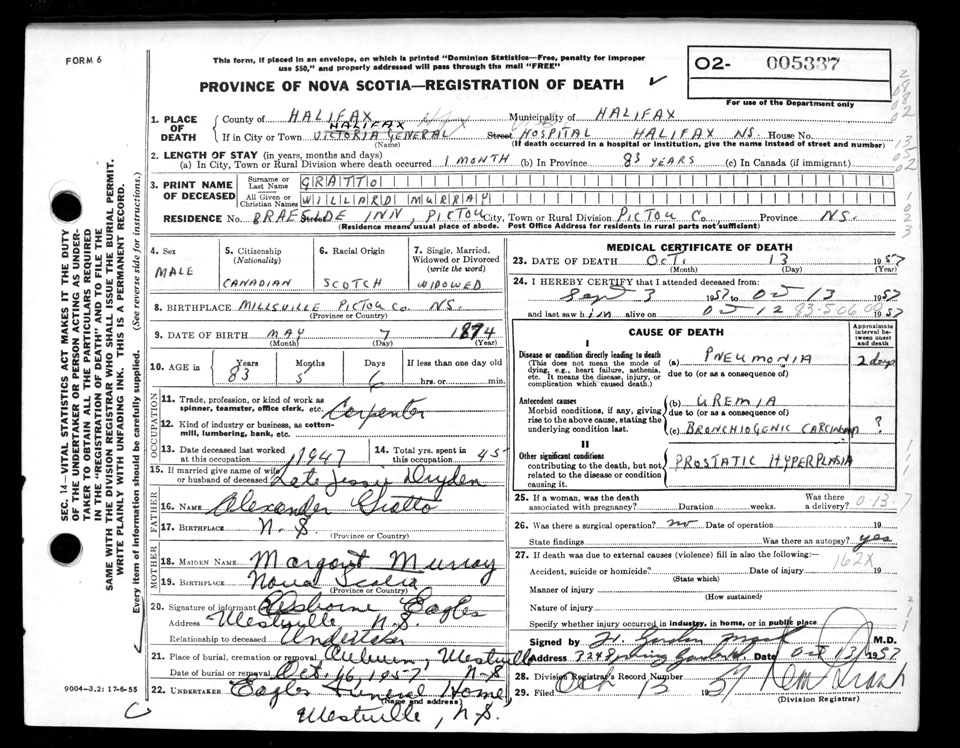 FORM 6
This form, if placed in an envelope, on which is printed "Dominion Statistics—Free, penalty for improper
use $50," and properly addressed will pass through the mail "FREE"
PROVINCE OF NOVA SCOTIA—REGISTRATION OF DEATH
O2- 005337
For use of the Department only
1. PLACE OF DEATH
County of HALIFAX Municipality of HALIFAX
HALIFAX
If in City or Town VICTORIA GENERAL Street HOSPITAL HALIFAX NS. House No.
(Name) (If death occurred in a hospital or institution, give the name instead of street and number)
2. LENGTH OF STAY (in years, months and days)
(a) In City, Town or Rural Division where death occurred 1 MONTH (b) In Province 83 YEARS (c) In Canada (if immigrant)
3. PRINT NAME OF DECEASED
Surname or Last Name GRATTO
All Given or Christian Names WILLARD MURRAY
RESIDENCE No. BRAESIDE INN, PICTOU Street City, Town or Rural Division PICTOU Co. Province NS.
(Residence means usual place of abode. Post Office Address for residents in rural parts not sufficient)
4. Sex
MALE
5. Citizenship (Nationality)
CANADIAN
6. Racial Origin
SCOTCH
7. Single, Married, Widowed or Divorced (write the word)
WIDOWED
8. BIRTHPLACE MILLSVILLE PICTOU Co. NS.
(Province or Country)
9. DATE OF BIRTH MAY 7 1874
(Month) (Day) (Year)
10. AGE IN
Years 83 Months 5 Days 6
If less than one day old
hrs. or min.
OCCUPATION
11. Trade, profession, or kind of work as spinner, teamster, office clerk, etc. Carpenter
12. Kind of industry or business, as cotton-mill, lumbering, bank, etc.
13. Date deceased last worked at this occupation 1947
14. Total yrs. spent in this occupation 45
15. If married give name of wife or husband of deceased Late Jessie Dryden
FATHER
16. NAME Alexander Gratto
17. BIRTHPLACE N.S.
(Province or Country)
MOTHER
18. MAIDEN NAME Margaret Murray
19. BIRTHPLACE Nova Scotia
(Province or Country)
20. Signature of informant Osborne Eagles
Address Westville N.S.
Relationship to deceased Undertaker
21. Place of burial, cremation or removal Auburn, Westville
Date of burial or removal Oct. 16, 1957 N-S
22. UNDERTAKER Eagles Funeral Home,
(Name and address)
Westville, N.S.
MEDICAL CERTIFICATE OF DEATH
23. DATE OF DEATH OCT. 13 1957
(Month) (Day) (Year)
24. I HEREBY CERTIFY that I attended deceased from:
Sept 3 1957 to Oct 13 1957
and last saw him alive on Oct 12 1957
CAUSE OF DEATH
Approximate interval between onset and death
I
Disease or condition directly leading to death
(This does not mean the mode of dying, e.g., heart failure, asthenia, etc. It means the disease, injury, or complication which caused death.)
(a) PNEUMONIA 2 days
due to (or as a consequence of)
Antecedent causes
Morbid conditions, if any, giving rise to the above cause, stating the underlying condition last.
(b) UREMIA
due to (or as a consequence of)
(c) BRONCHIOGENIC CARCINOMA ?
II
Other significant conditions
contributing to the death, but not related to the disease or condition causing it.
PROSTATIC HYPERPLASIA
25. If a woman, was the death associated with pregnancy? Duration weeks. Was there a delivery?
26. Was there a surgical operation? no Date of operation 19
State findings Was there an autopsy? yes
27. If death was due to external causes (violence) fill in also the following:—
162X
Accident, suicide or homicide? Date of injury 19
(State which)
Manner of injury
(How sustained)
Nature of injury
Specify whether injury occurred in industry, in home, or in public place
Signed by H. Gordon M.D.
Address 324 Spring Garden Rd. Date Oct 13 1957
28. Division Registrar's Record Number
29. Filed Oct 15 1957
(Division Registrar)
SEC. 14—VITAL STATISTICS ACT MAKES IT THE DUTY
OF THE UNDERTAKER OR PERSON ACTING AS UNDER-
TAKER TO OBTAIN ALL THE PARTICULARS REQUIRED
IN THE "REGISTRATION OF DEATH" AND TO FILE THE
SAME WITH THE DIVISION REGISTRAR WHO SHALL ISSUE THE BURIAL PERMIT.
WRITE PLAINLY WITH UNFADING INK. THIS IS A PERMANENT RECORD.
Every item of information should be carefully supplied. (See reverse side for instructions.)
9004—3.2: 17-6-55